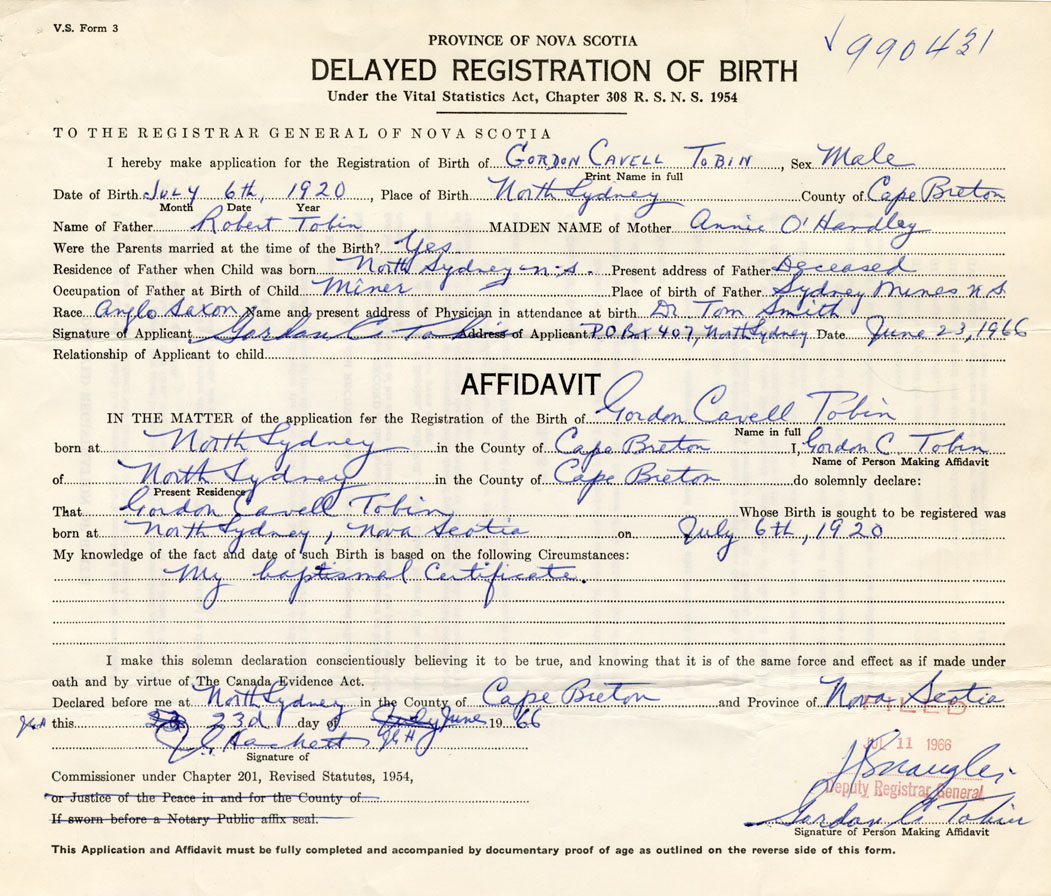 V.S. Form 3
990431
PROVINCE OF NOVA SCOTIA
DELAYED REGISTRATION OF BIRTH
Under the Vital Statistics Act, Chapter 308 R. S. N. S. 1954
TO THE REGISTRAR GENERAL OF NOVA SCOTIA
I hereby make application for the Registration of Birth of GORDON CAVELL TOBIN, Sex Male
Print Name in full
Date of Birth JULY 6th, 1920, Place of Birth North Sydney County of Cape Breton
Month Date Year
Name of Father Robert Tobin MAIDEN NAME of Mother Annie O'Handley
Were the Parents married at the time of the Birth? Yes
Residence of Father when Child was born North Sydney N.S. Present address of Father Deceased
Occupation of Father at Birth of Child Miner Place of birth of Father Sydney Mines N.S.
Race Anglo Saxon Name and present address of Physician in attendance at birth Dr Tom Smith
Signature of Applicant Gordon C Tobin Address of Applicant P.O Box 407, North Sydney Date June 23, 1966
Relationship of Applicant to child
AFFIDAVIT
IN THE MATTER of the application for the Registration of the Birth of Gordon Cavell Tobin
Name in full
born at North Sydney in the County of Cape Breton I, Gordon C Tobin
Name of Person Making Affidavit
of North Sydney in the County of Cape Breton do solemnly declare:
Present Residence
That Gordon Cavell Tobin Whose Birth is sought to be registered was
born at North Sydney, Nova Scotia on July 6th, 1920
My knowledge of the fact and date of such Birth is based on the following Circumstances:
My baptismal Certificate.
I make this solemn declaration conscientiously believing it to be true, and knowing that it is of the same force and effect as if made under
oath and by virtue of The Canada Evidence Act.
Declared before me at North Sydney in the County of Cape Breton and Province of Nova Scotia
FILED
this 23d day of July June 19 66
JUL 11 1966
Signature of
Commissioner under Chapter 201, Revised Statutes, 1954,
Deputy Registrar General
or Justice of the Peace in and for the County of
If sworn before a Notary Public affix seal.
Gordon C Tobin
Signature of Person Making Affidavit
This Application and Affidavit must be fully completed and accompanied by documentary proof of age as outlined on the reverse side of this form.